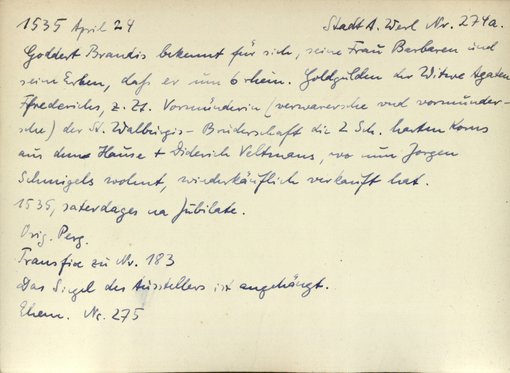 1535 April 24 Stadt A. Werl Nr. 274a.
Goddert Brandis bekennt für sich, seine Frau Barbaren und
seine Erben, daß er um 6 rhein. Goldgulden der Witwe Agaten
Frederichs, z. Zt. Vormünderin (verwarersche vnd vormunder-
sche) der St. Walburgis-Bruderschaft die 2 Sch. harten Korns
aus dem Hause + Diderich Veltmans, wo nun Jorgen
Schmigels wohnt, wiederkäuflich verkauft hat.
1535, saterdages na Jubilate.
Orig. Perg.
Transfix zu Nr. 183
Das Siegel des Ausstellers ist angehängt.
Ehem. Nr. 275